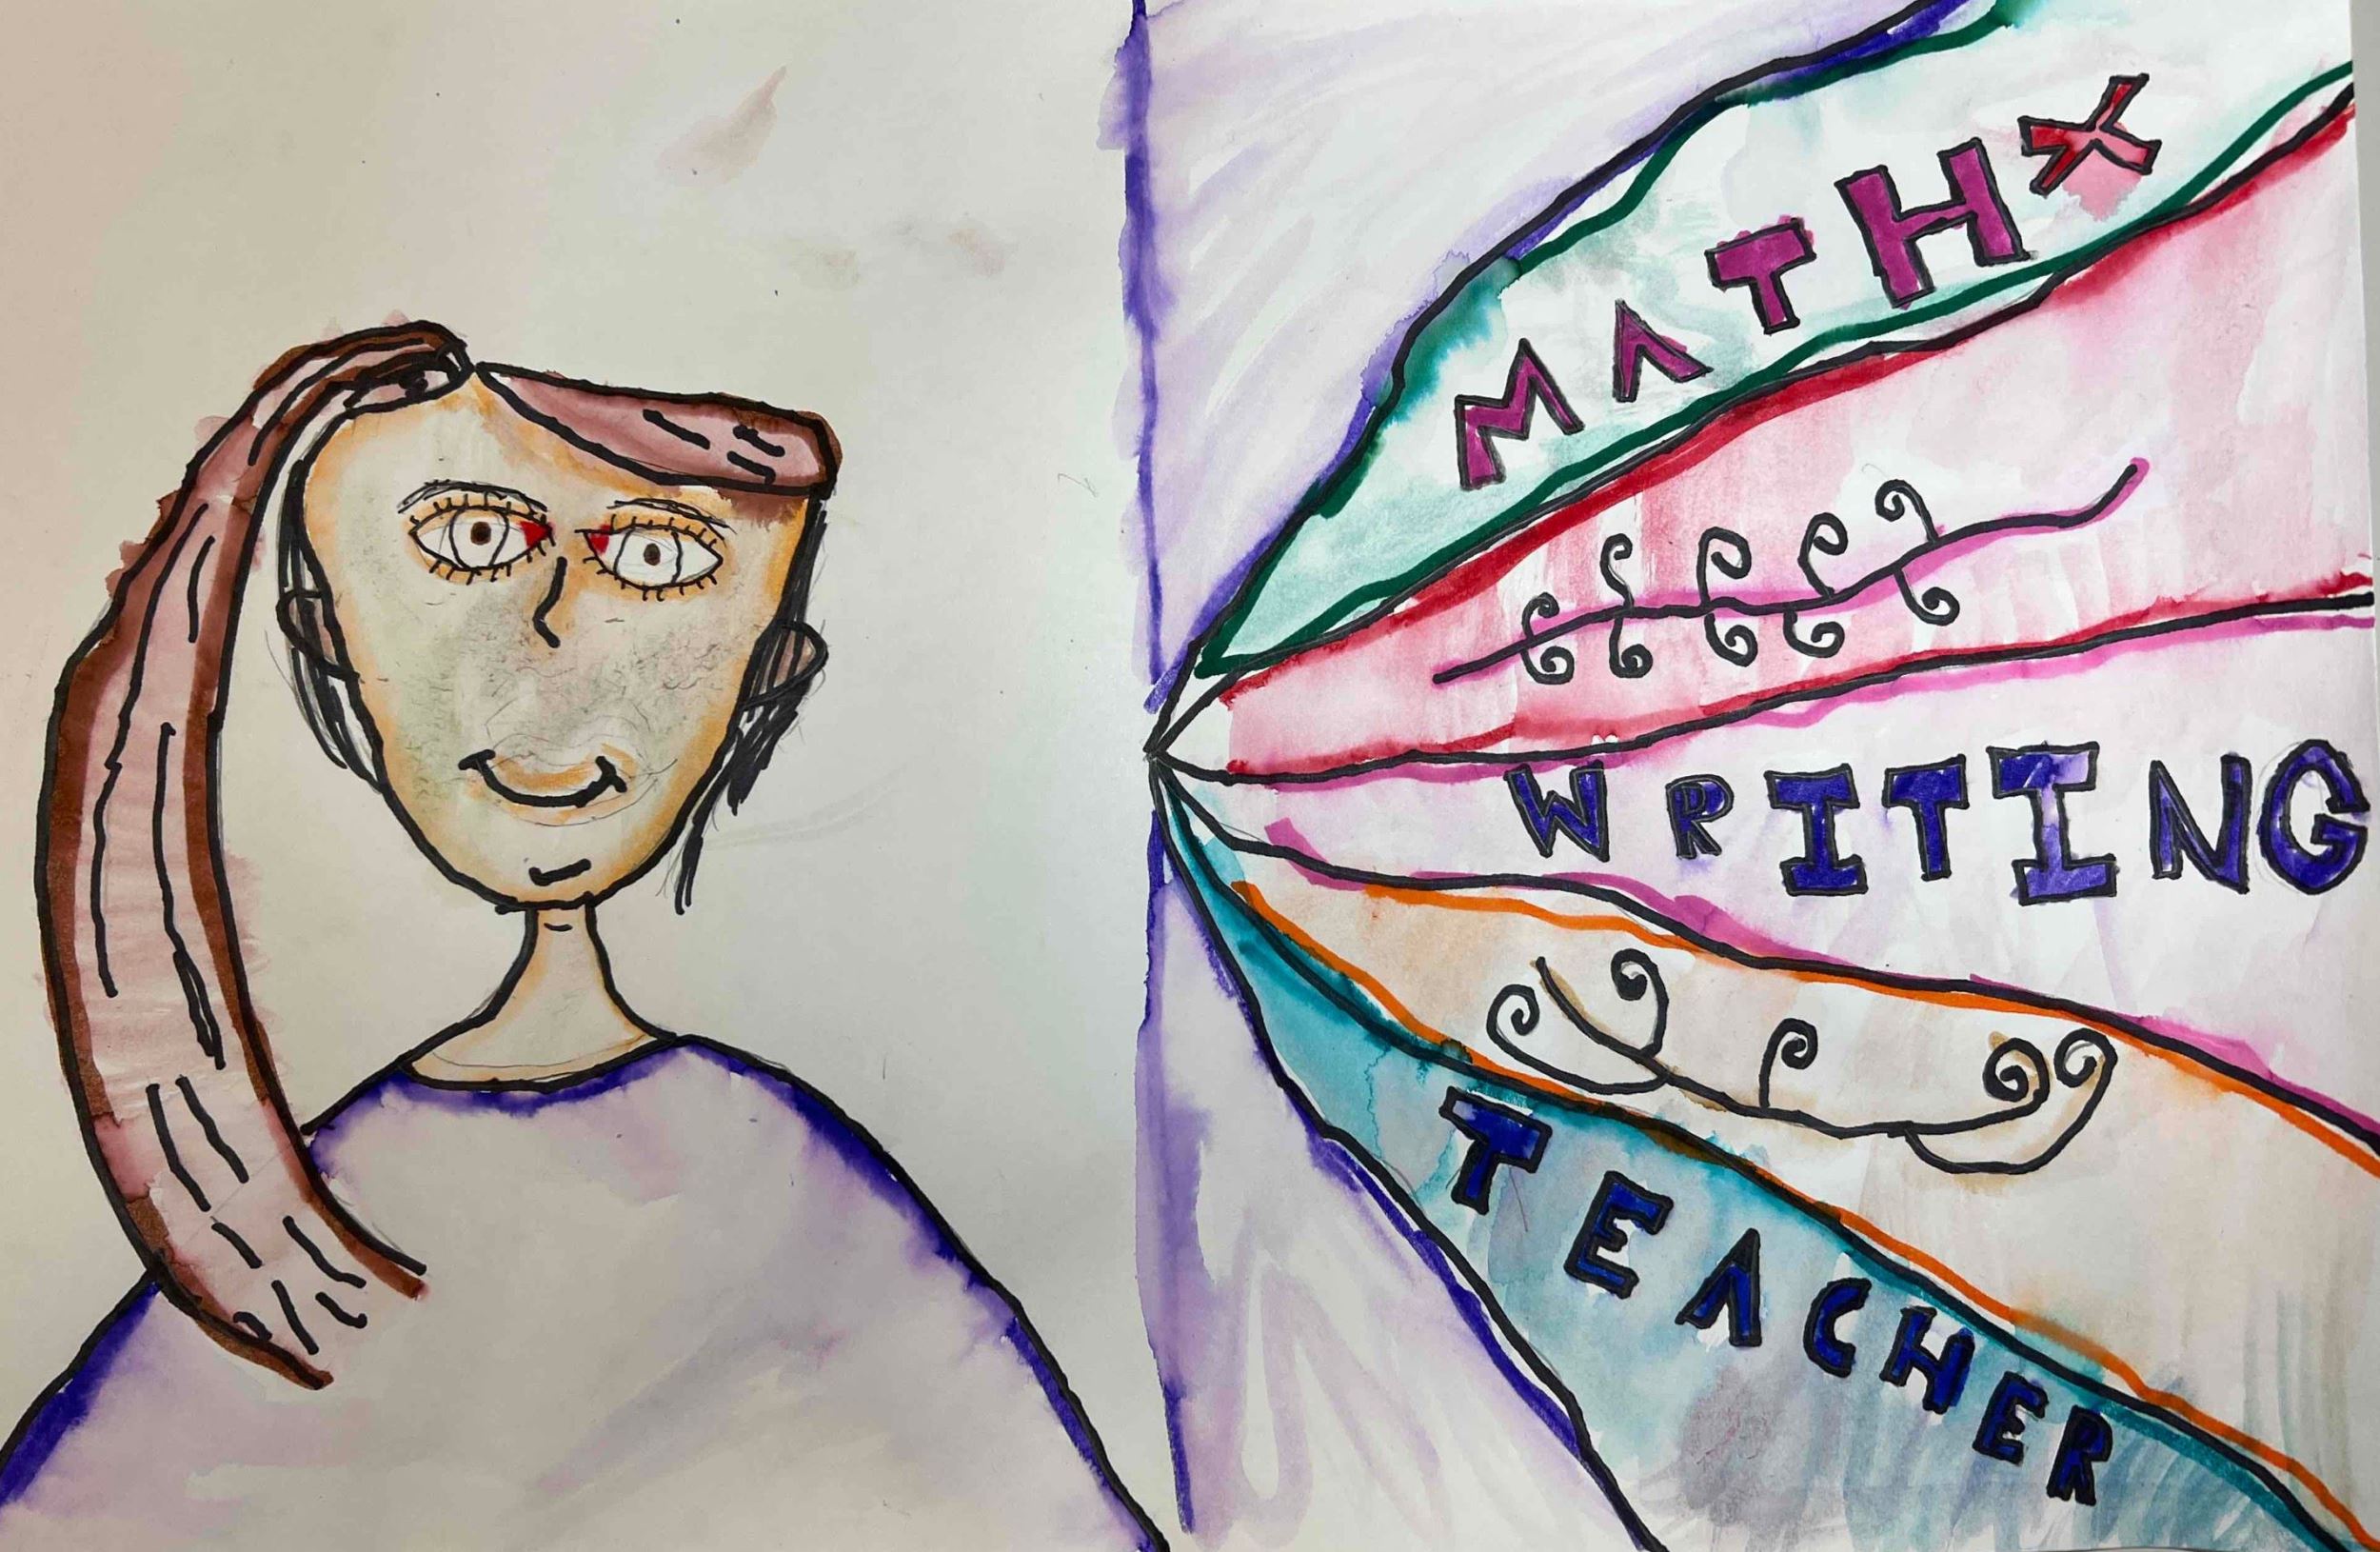 MATHX
WRITING
TEACHER